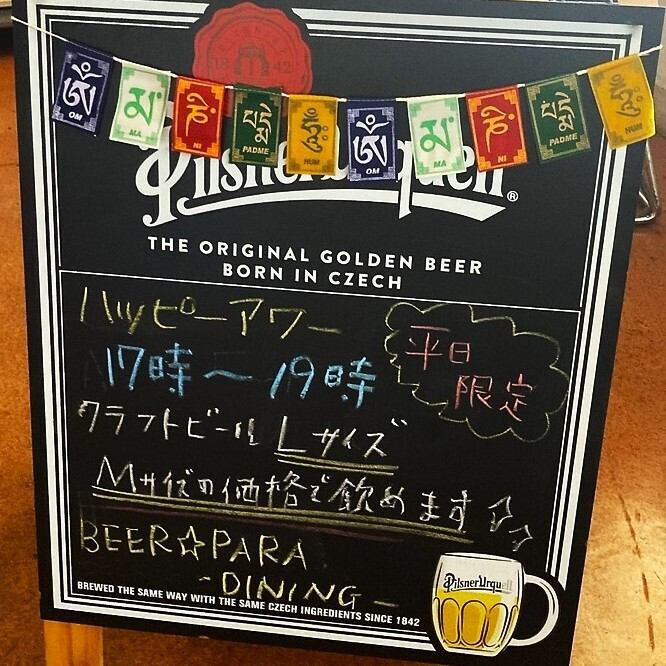 1842
ॐ མ ཎི པདྨེ ཧཱུྃ ॐ མ ཎི པདྨེ ཧཱུྃ
OM MA NI PADME HUM OM MA NI PADME HUM
Pilsner Urquell®
THE ORIGINAL GOLDEN BEER
BORN IN CZECH
ハッピーアワー
17時～19時
平日
限定
クラフトビール Lサイズ
Mサイズの価格で飲めます☆☆
BEER☆PARA
-DINING-
BREWED THE SAME WAY WITH THE SAME CZECH INGREDIENTS SINCE 1842
Pilsner Urquell